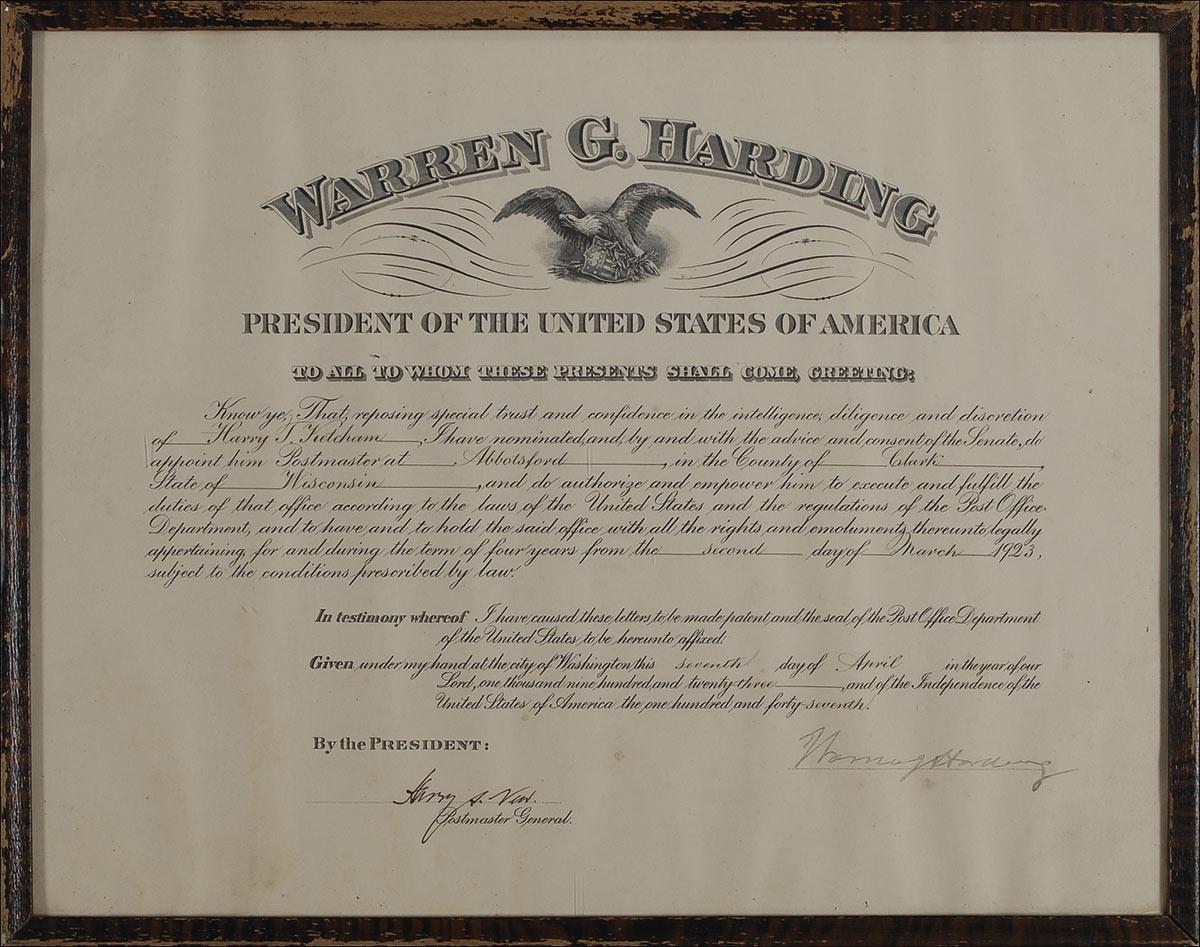 WARREN G. HARDING
PRESIDENT OF THE UNITED STATES OF AMERICA
TO ALL TO WHOM THESE PRESENTS SHALL COME, GREETING:
Know ye, That, reposing special trust and confidence in the intelligence, diligence and discretion
of Harry T. Ketcham, I have nominated, and, by and with the advice and consent of the Senate, do
appoint him Postmaster at Abbotsford, in the County of Clark,
State of Wisconsin, and do authorize and empower him to execute and fulfill the
duties of that office according to the laws of the United States and the regulations of the Post Office
Department, and to have and to hold the said office with all the rights and emoluments thereunto legally
appertaining, for and during the term of four years from the second day of March 1923,
subject to the conditions prescribed by law.
In testimony whereof I have caused these letters to be made patent and the seal of the Post Office Department
of the United States to be hereunto affixed.
Given under my hand at the city of Washington this seventh day of April in the year of our
Lord, one thousand nine hundred and twenty-three, and of the Independence of the
United States of America the one hundred and forty-seventh.
By the PRESIDENT:
Warren G Harding
Harry S. New.
Postmaster General.